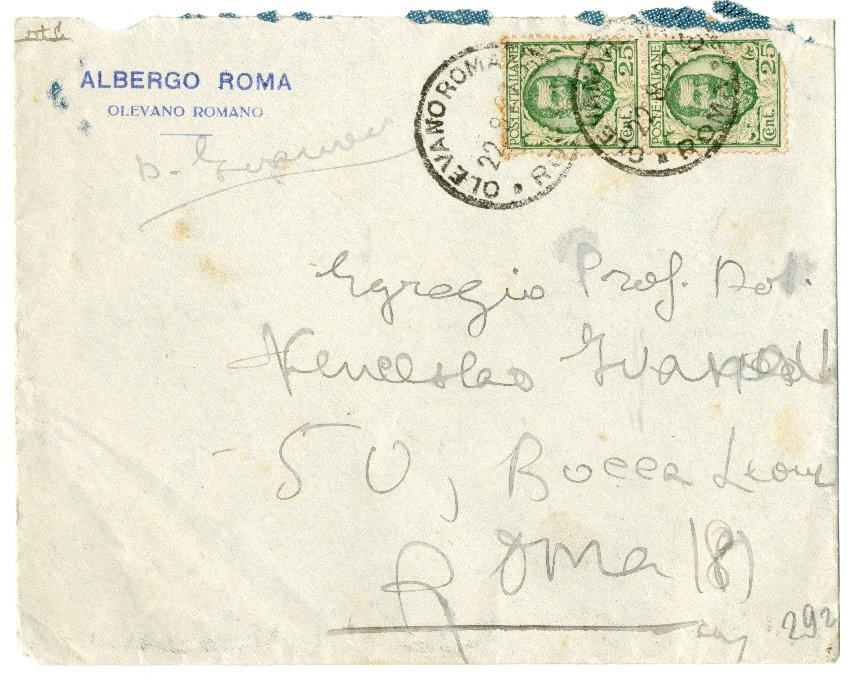 ALBERGO ROMA
OLEVANO ROMANO
POSTE ITALIANE
Cent. 25
POSTE ITALIANE
Cent. 25
OLEVANO ROMANO
ROMA
22
OLEVANO
ROMA
22
Egregio Prof. Dot.
Venceslao Ivanoff
50, Bocca Leone
Roma (8)
292